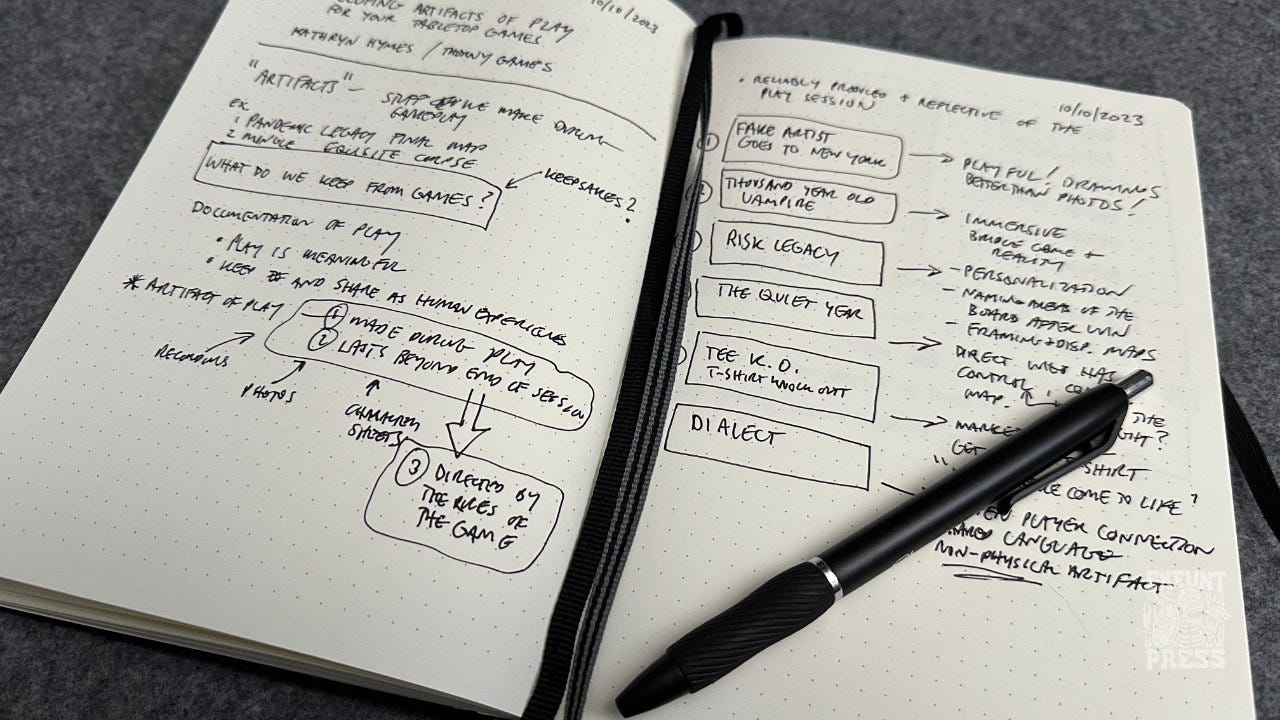 ARTIFACTS OF PLAY
10/10/2023
FOR YOUR TABLETOP GAMES
KATHRYN HYMES / THORNY GAMES
"ARTIFACTS" — STUFF WE MAKE DURING
GAMEPLAY
EX.
1 PANDEMIC LEGACY FINAL MAP
2 EQUISITE CORPSE
WHAT DO WE KEEP FROM GAMES?
KEEPSAKES?
DOCUMENTATION OF PLAY
• PLAY IS MEANINGFUL
• KEEP AND SHARE AS HUMAN EXPERIENCES
* ARTIFACT OF PLAY
1 MADE DURING PLAY
2 LASTS BEYOND END OF SESSION
RECORDINGS
PHOTOS
CHARACTER
SHEETS
3 DIRECTED BY
THE RULES OF
THE GAME
• RELIABLY PRODUCED + REFLECTIVE OF THE
PLAY SESSION
10/10/2023
1 FAKE ARTIST
GOES TO NEW YORK
PLAYFUL! DRAWINGS
BETTER THAN PHOTOS!
THOUSAND YEAR OLD
VAMPIRE
IMMERSIVE
BRIDGE GAME +
REALITY
RISK LEGACY
- PERSONALIZATION
- NAMING AREAS OF THE
BOARD AFTER WIN
- FRAMING + DISP. MAPS
THE QUIET YEAR
DIRECT HAS
CONTROL
MAP.
TEE K.O.
T-SHIRT KNOCK OUT
THE
GET
SHIRT
COME TO LIFE?
DIALECT
PLAYER CONNECTION
LANGUAGE
NON-PHYSICAL ARTIFACT
EXEUNT
PRESS